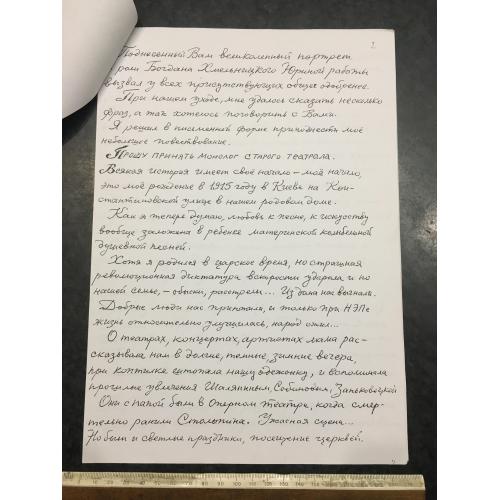 1
Поднесенный Вам великолепный портрет
роли Богдана Хмельницкого Юриной работы
вызвал у всех присутствующих общее одобрение.
При нашем уходе, мне удалось сказать несколько
фраз, а так хотелось поговорить с Вами.
Я решил в письменной форме преподнести моё
небольшое повествование.
Прошу принять монолог старого театрала.
Всякая история имеет своё начало – моё начало,
это моё рождение в 1915 году в Киеве на Кон-
стантиновской улице в нашем родовом доме.
Как я теперь думаю, любовь к песне, к искусству
вообще заложена в ребенке материнской колыбельной
душевной песней.
Хотя я родился в царское время, но страшная
революционная диктатура вскорости ударила и по
нашей семье, – обыски, расстрелы... Из дома нас выгнали.
Добрые люди нас приютили, и только при НЭПе
жизнь относительно улучшилась, народ ожил...
О театрах, концертах, артистах мама рас-
сказывала нам в долгие, темные, зимние вечера,
при коптилке штопала нашу одежонку, и вспоминала
прошлые увлечения Шаляпиным, Собиновым, Заньковецкой
Они с папой были в Оперном театре, когда смер-
тельно ранили Столыпина. Ужасная сцена...
Но были и светлые праздники, посещение церквей.